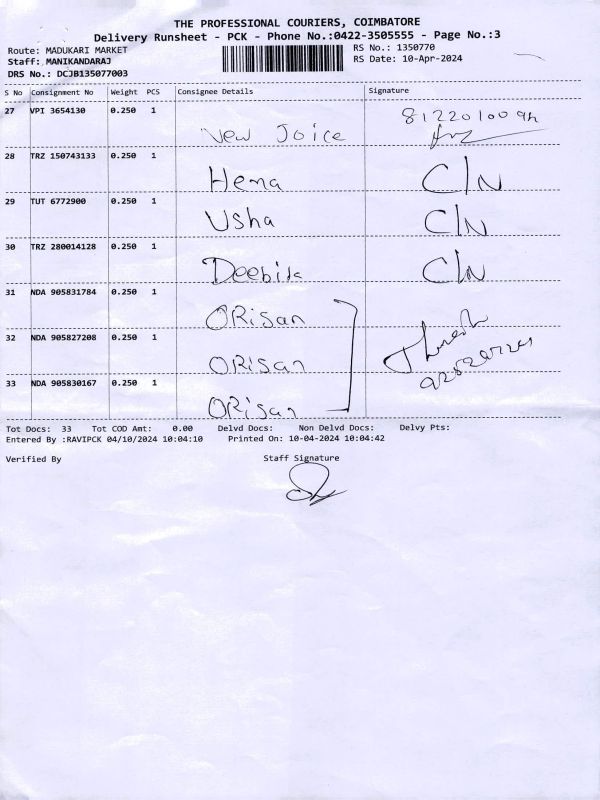 THE PROFESSIONAL COURIERS, COIMBATORE
Delivery Runsheet - PCK - Phone No.:0422-3505555 - Page No.:3
Route: MADUKARI MARKET RS No.: 1350770
Staff: MANIKANDARAJ RS Date: 10-Apr-2024
DRS No.: DCJB135077003
S No Consignment No Weight PCS Consignee Details Signature
27 VPI 3654130 0.250 1 New Joice
28 TRZ 150743133 0.250 1 Hema C/N
29 TUT 6772900 0.250 1 Usha C/N
30 TRZ 280014128 0.250 1 Deebika C/N
31 NDA 905831784 0.250 1 ORisan
32 NDA 905827208 0.250 1 ORisan
33 NDA 905830167 0.250 1 ORisan
Tot Docs: 33 Tot COD Amt: 0.00 Delvd Docs: Non Delvd Docs: Delvy Pts:
Entered By :RAVIPCK 04/10/2024 10:04:10 Printed On: 10-04-2024 10:04:42
Verified By Staff Signature